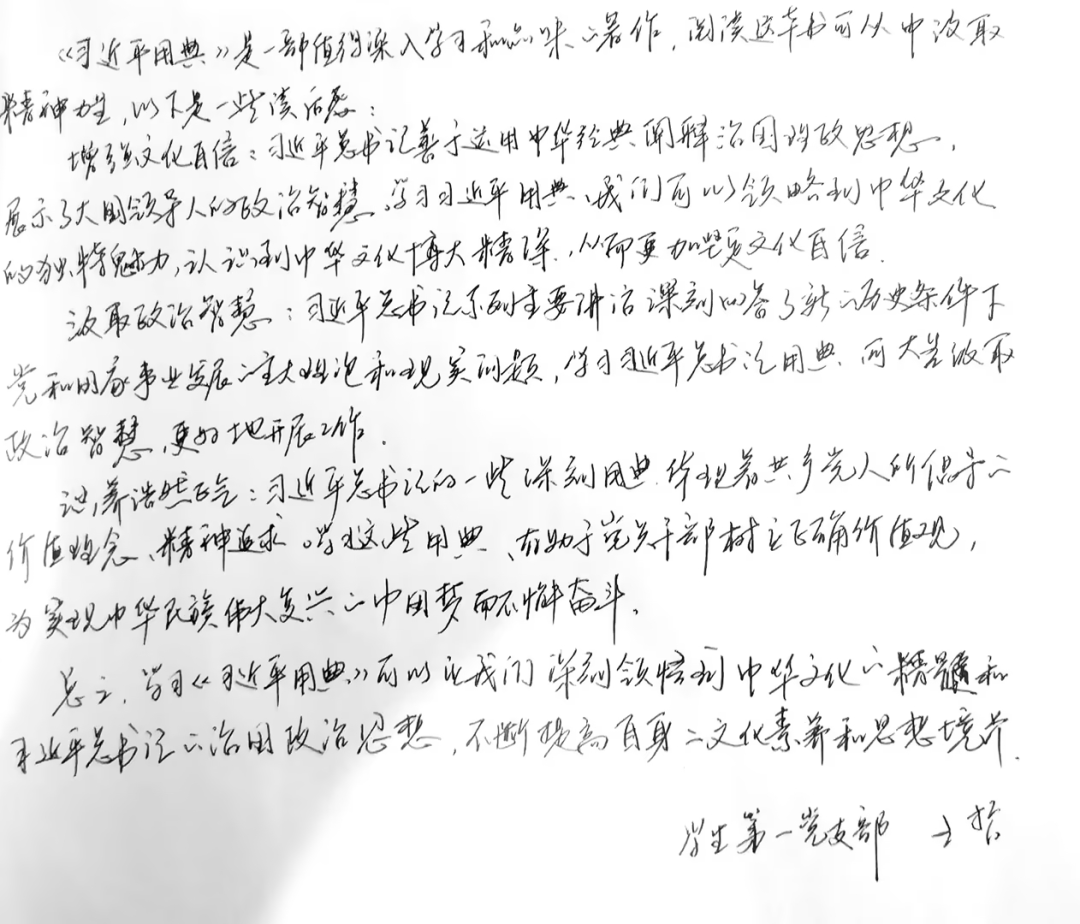 《习近平用典》是一部值得深入学习和品味的著作,阅读这本书可从中汲取
精神力量,以下是一些读后感:
增强文化自信:习近平总书记善于运用中华经典阐释治国理政思想,
展示了大国领导人的政治智慧,学习习近平用典,我们可以领略到中华文化
的独特魅力,认识到中华文化博大精深,从而更加坚定文化自信.
汲取政治智慧:习近平总书记系列重要讲话深刻回答了新的历史条件下
党和国家事业发展的重大理论和现实问题,学习习近平总书记用典,可大益汲取
政治智慧,更好地开展工作.
涵养浩然正气:习近平总书记的一些深刻用典,体现着共产党人所倡导的
价值理念、精神追求。学习这些用典,有助于党员干部树立正确价值观,
为实现中华民族伟大复兴的中国梦而不懈奋斗.
总之,学习《习近平用典》可以让我们深刻领悟到中华文化的精髓和
习近平总书记的治国政治思想,不断提高自身的文化素养和思想境界.
学生第一党支部